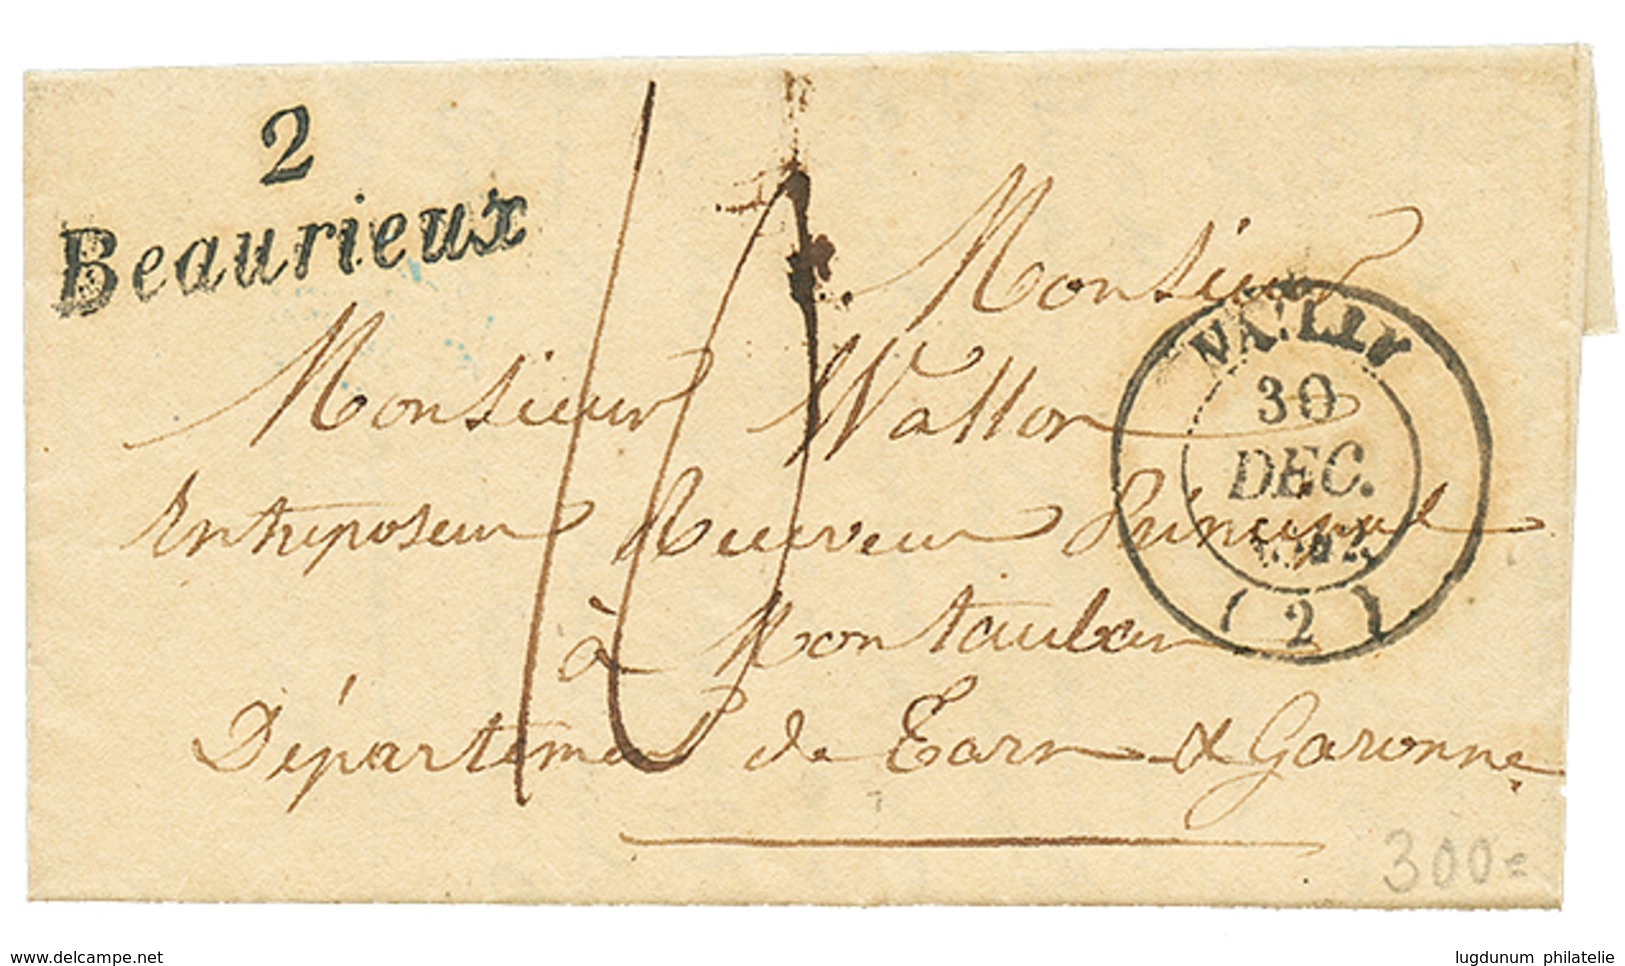 2
Beaurieux
Monsieur
Monsieur Watton
Entreposeur Receveur Principal
à Montauban
Département de Tarn & Garonne
VAILLY
30
DEC.
(2)
300=
www.delcampe.net
lugdunum philatelie